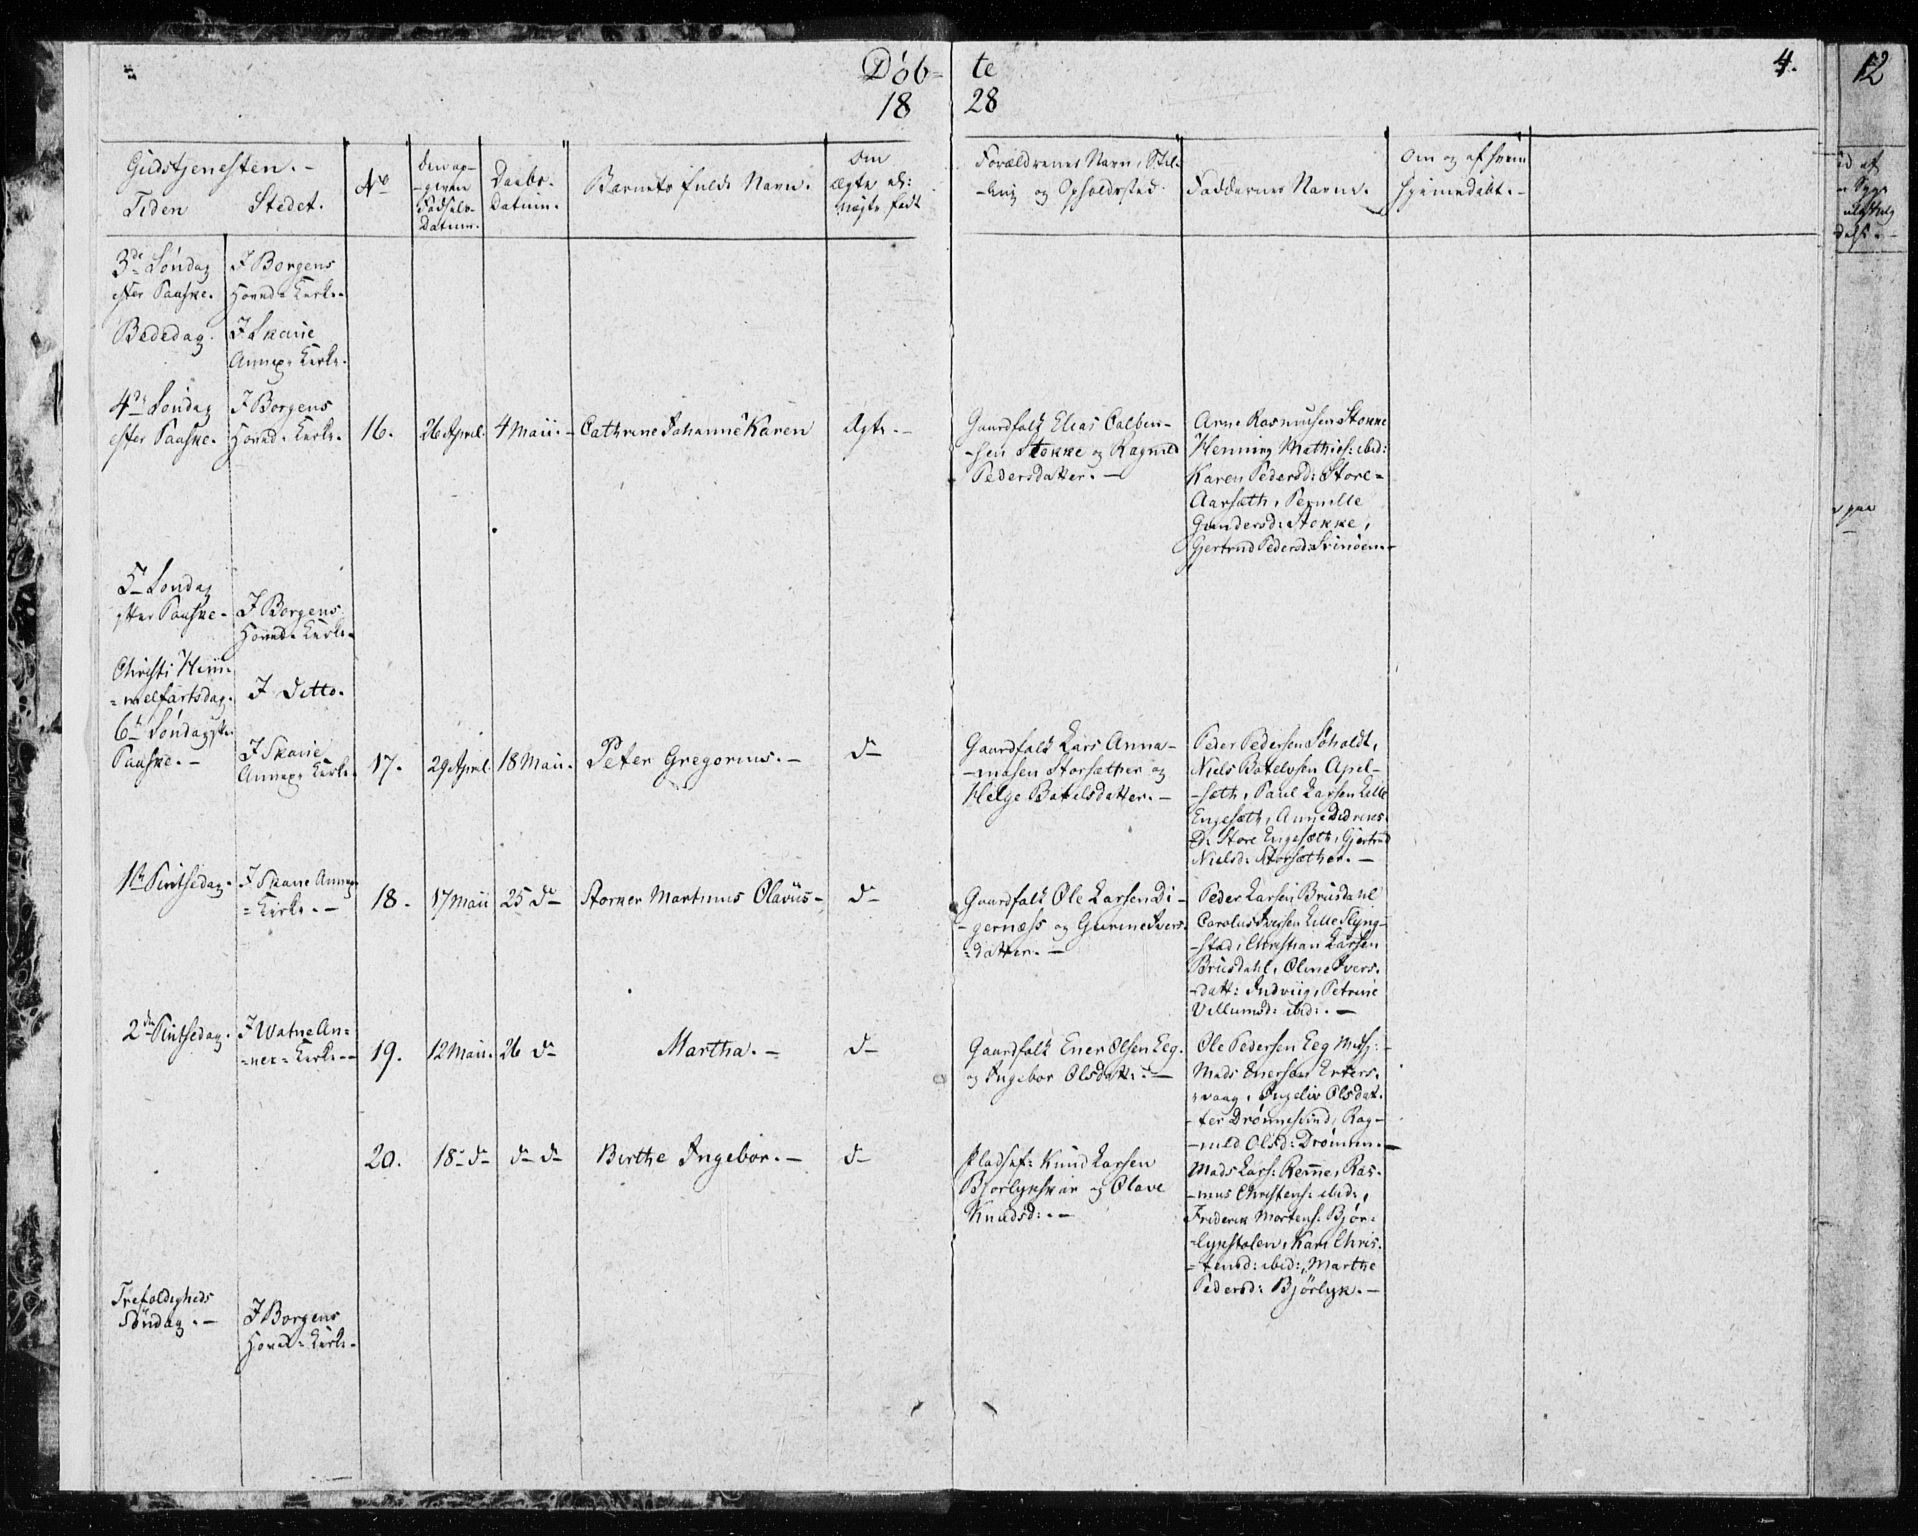 Döb-te
4.
12
1828
Gudstjenesten.-
Tiden Stedet.
No
Den op-
-given
Födsels-
Datum.
Daabs-
Datum.
Barnets fulde Navn.
Om
ægte el:
uægte födt
Forældrenes Navn, Stil-
-ling og Opholdssted.
Faddernes Navne.
Om og af hvem
hjemmedöbt.-
3de Söndag
efter Paaske.
I Borgens
Hoved-Kirke.
Bededag.
I Skarie
Annex-Kirke.
4de Söndag
efter Paaske.
I Borgens
Hoved-Kirke.
16.
26 April.
4 Maii.-
Cathrine Johanne Karen
Ægte.-
Gaardfolk Elias
-sen Stokke og Ragnild
Pedersdatter.-
Arne Rasmusen Stokke
Henning Mathies: ibid:
Karen Pedersd: Store-
Aarsæth, Pernille
Gundersd: Stokke,
Gjertrud Pedersd:
5te Söndag
efter Paaske-
I Borgens
Hoved-Kirke.
Christi Him-
=melfartsdag.
I Ditto.
6te Söndag efter
Paaske.-
I Skarie
Annex-Kirke.
17.
29 April.
18 Maii.
Peter Gregorius.-
do
Gaardfolk Lars Anna-
-nisen Storsæther og
Helge Batelsdatter.-
Peder Pedersen Soholdt,
Niels Batelvsen Apel-
-sæth, Paul Larsen Lille
Engesæth, Anne Didriks-
D: Store Engesæth, Gjertrud
Nielsd: Storsæther.-
1ste Pintsedag.
I Skarie Annex-
=Kirke.-
18.
17 Maii
25 do
Storner Martinus Olavus-
do
Gaardfolk Ole Larsen Di-
-gernæss og Gurine Ivers-
=datter.-
Peder Larsen Brusdahl
Carolus Iversen Lille Slyng-
-stad, Christian Larsen
Brusdahl, Oline Ivers-
-datt: Indviig, Petrine
Villumsd: ibid:.-
2den Pintsedag.
I Watne An-
=nex-Kirke--
19.
12 Maii.
26 do
Martha.-
do
Gaardfolk Ener Olsen Eeg.
og Ingebor Olsdatt:.-
Ole Pedersen Eeg
Mads Enersen Eiters-
=vaag, Ingeliv Olsdat-
-ter Drönnesund, Rag-
-nild Olsd: Drönnen.-
20.
18 do
do do
Birthe Ingebor.-
do
Pladsf: Knud Larsen
og Olave
Knudsd:.-
Mads Lars: Reme, Ras-
-mus Christens: ibid:,
Friderik Mortens: Bjør-
=lykstolen, Kari Chris-
-tensd: ibid:, Marthe
Pedersd: Bjørlyk.-
Trefoldigheds
Söndag.-
I Borgens
Hoved-Kirke.